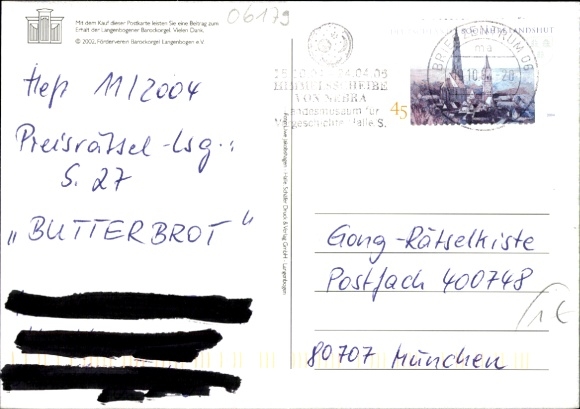 Mit dem Kauf dieser Postkarte leisten Sie eine Beitrag zum
Erhalt der Langenbogener Barockorgel. Vielen Dank.
© 2002, Förderverein Barockorgel Langenbogen e.V.
06179
Heft 11/2004
Preisrätsel-Lsg.:
S. 27
„BUTTERBROT"
15.10.04 - 24.04.05
HIMMELSSCHEIBE
VON NEBRA
Landesmuseum für
Vorgeschichte Halle, S.
BRIEFZENTRUM 06
ma
LANDSHUT
45
Gong-Rätselkiste
Postfach 400748
1€
80707 München